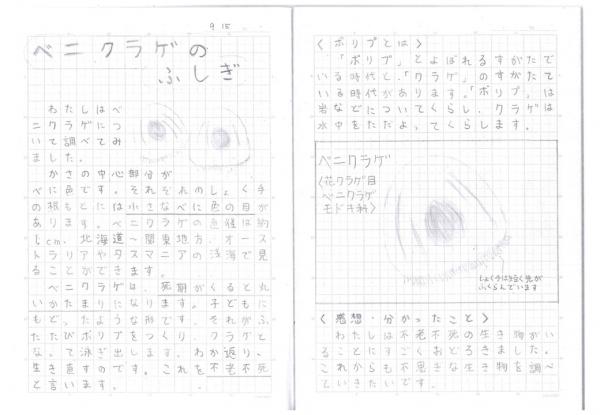 9 15
ベニクラゲの
ふしぎ
わたしはベ
ニクラゲにつ
いて調べてみ
ました。
かさの中心部分が
べに色です。それぞれのしょく手
の根もとには小さなべに色の目が
あります。ベニクラゲの直径は約
1cm、北海道～関東地方、オース
トラリアやタスマニアの浅海で見
ることができます。
ベニクラゲは、死期がくると丸
いかたまりになります。子どもに
もどったような形です。それがふ
たたびポリプをつくり、クラゲと
なって泳ぎ出します。わか返り、
生き直すのです。これを不老不死
と言います。
〈ポリプとは〉
「ポリプ」とよばれるすがたで
いる時代と、「クラゲ」のすがたで
いる時代があります。「ポリプ」は
岩などについてくらし、クラゲは
水中をただよってくらします。
ベニクラゲ
〈花クラゲ目
ベニクラゲ
モドキ科〉
しょく手は短く先が
ふくらんでいます
〈感想・分かったこと〉
わたしは不老不死の生き物がい
ることにすごくおどろきました。
これからも不思きな生き物を調べ
ていきたいです。